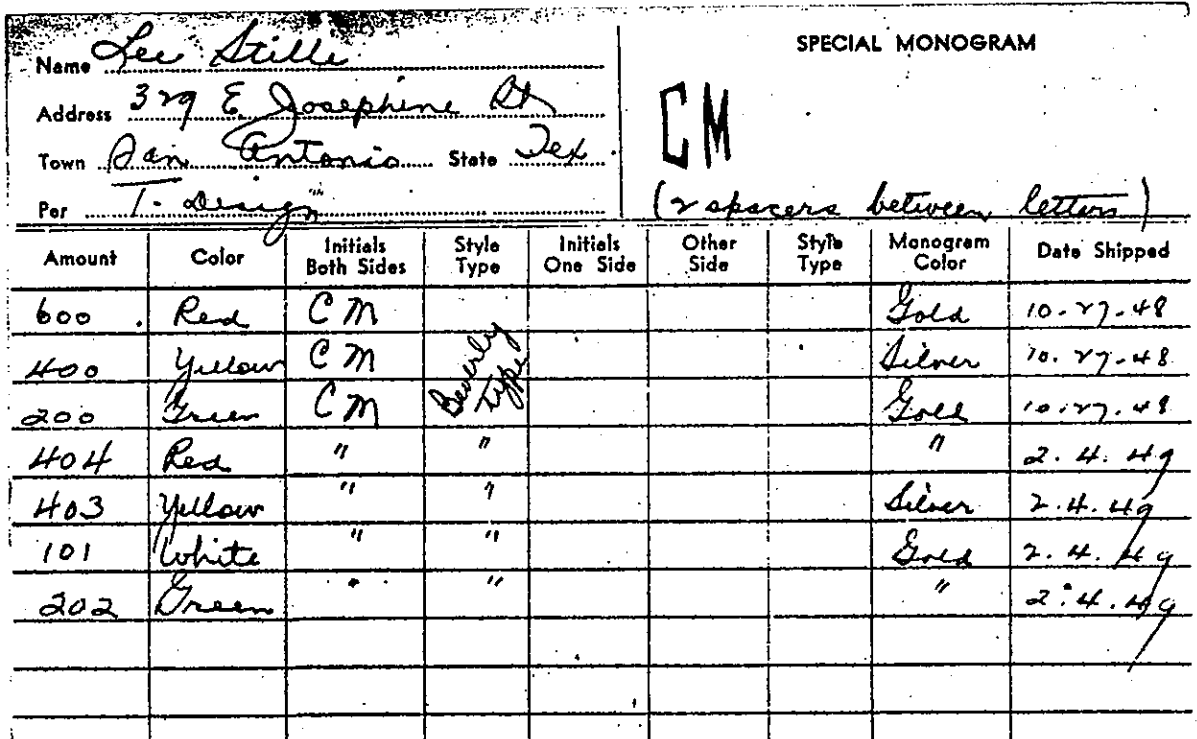 Name Lee Stille
SPECIAL MONOGRAM
Address 329 E. Josephine St
CM
Town San Antonio State Tex
Per T. Design
(2 spacers between letters)
Amount Color Initials Both Sides Style Type Initials One Side Other Side Style Type Monogram Color Date Shipped
600 Red CM Beverly type Gold 10.27.48
400 Yellow CM Silver 10.27.48
200 Green CM Gold 10.27.48
404 Red " " " 2.4.49
403 Yellow " " Silver 2.4.49
101 White " " Gold 2.4.49
202 Green " " " 2.4.49